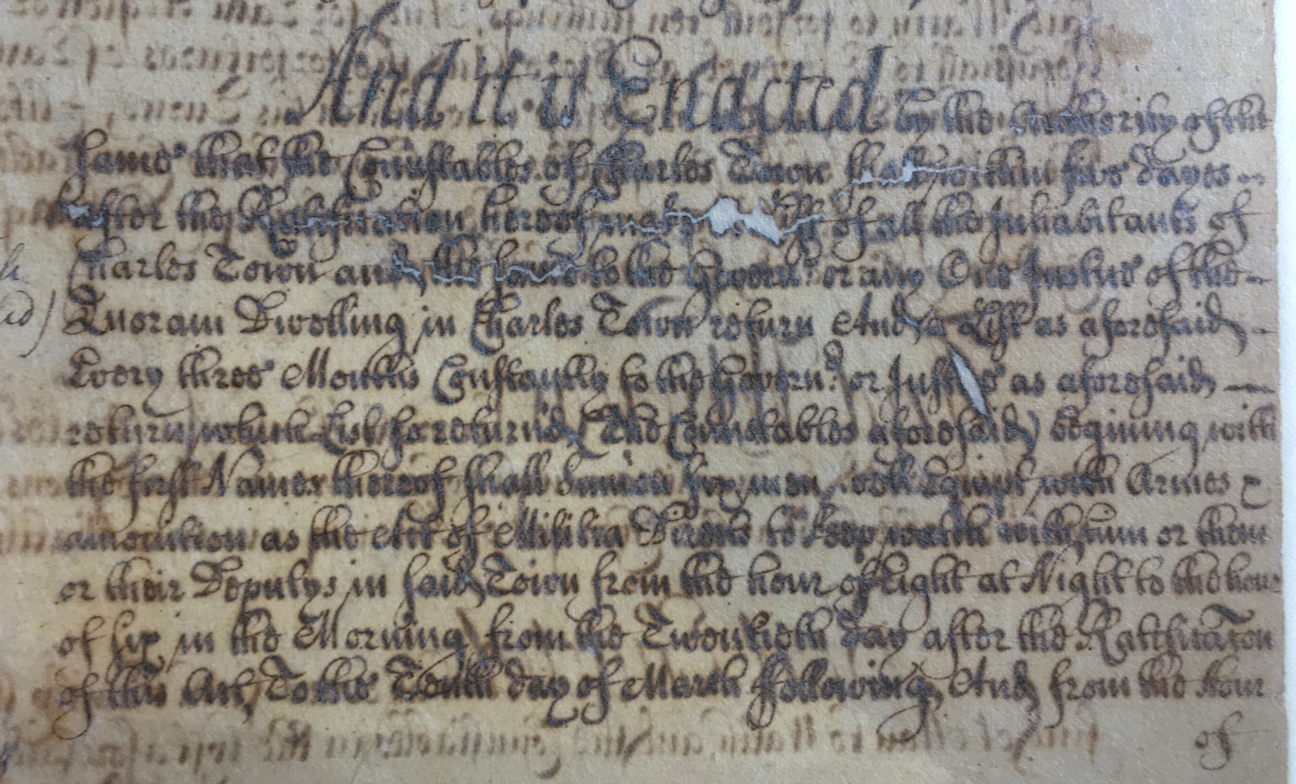 And it is Enacted by the Authority of the
same that the Constables of Charles Town shall within five dayes
after the Ratification hereof make a List of all the Inhabitants of
Charles Town and the same to the Govern.r or any One Justice of the
Quoram Dwelling in Charles Town return And a List as aforesaid
Every three Months Constantly to the Govern.r or Justice as aforesaid
return, which List so returnd (The Constables aforesaid) begining with
the first Names thereof shall Sumon six men well Equipt with Armes &
amonition as the Act of Militia Directs to keep watch with him or them
or their Deputys in said Town from the hour of Eight at Night to the hour
of six in the Morning from the Twentieth day after the Ratification
of this Act, To the Tenth day of March following, And from the Hour
of